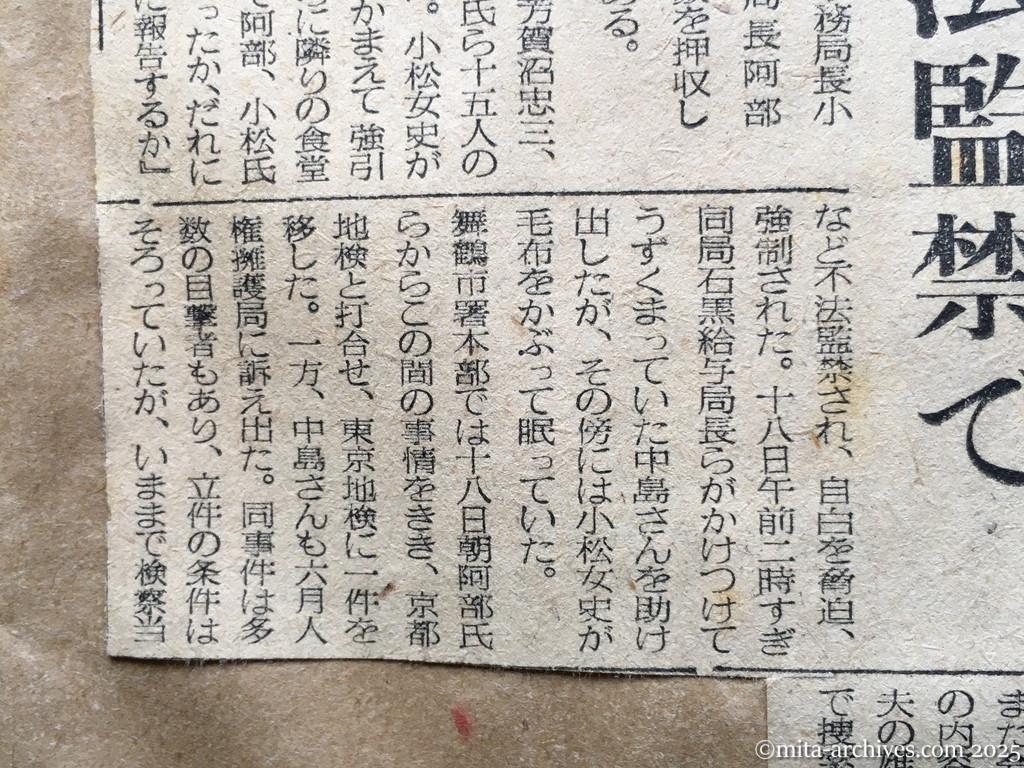 法監禁で
務局長小
局長阿部
を押収し
る。
芳賀沼忠三、
氏ら十五人の
。小松女史が
かまえて強引
に隣りの食堂
で阿部、小松氏
ったか、だれに
に報告するか」
など不法監禁され、自白を脅迫、
強制された。十八日午前二時すぎ
同局石黒給与局長らがかけつけて
うずくまっていた中島さんを助け
出したが、その傍には小松女史が
毛布をかぶって眠っていた。
舞鶴市署本部では十八日朝阿部氏
らからこの間の事情をきき、京都
地検と打合せ、東京地検に一件を
移した。一方、中島さんも六月人
権擁護局に訴え出た。同事件は多
数の目撃者もあり、立件の条件は
そろっていたが、いままで検察当
また
の内容
夫の雄
で捜
©mita-archives.com 2025